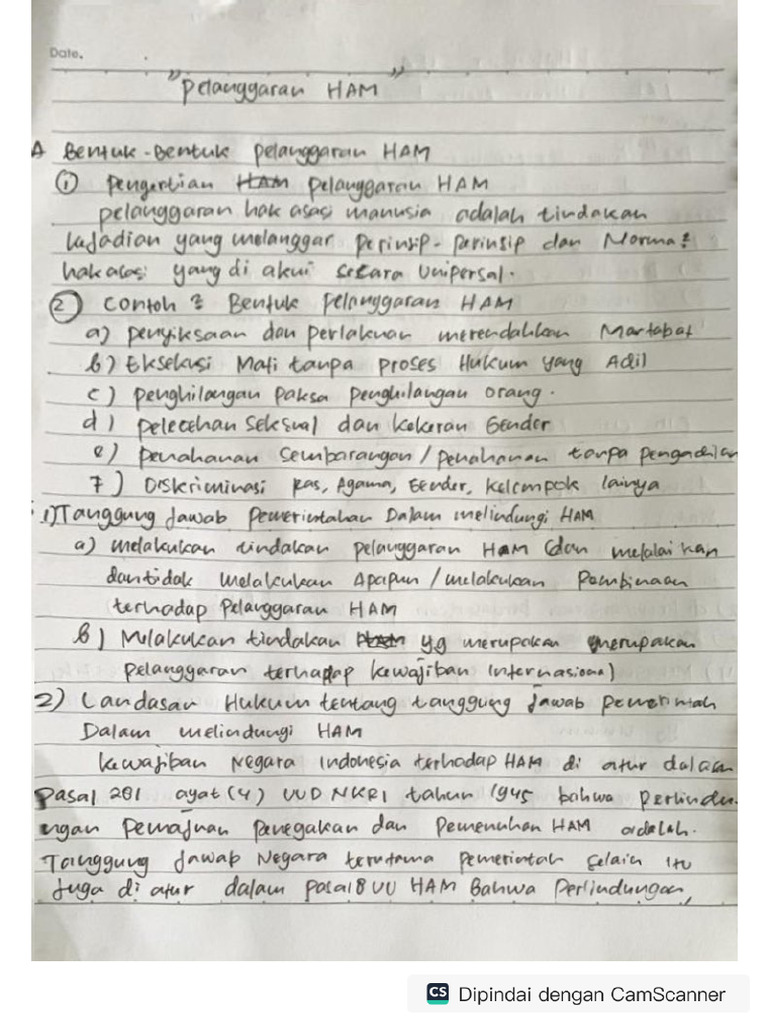 Date.
"Pelanggaran HAM"
A Bentuk-Bentuk Pelanggaran HAM
① Pengertian HAM Pelanggaran HAM
pelanggaran hak asasi manusia adalah tindakan
kejadian yang melanggar perinsip-perinsip dan Norma²
hak asasi yang di akui secara Unipersal.
② Contoh² Bentuk Pelanggaran HAM
a) penyiksaan dan perlakuan merendahkan Martabat
b) Eksekusi Mati tanpa proses Hukum yang Adil
c) penghilangan paksa penghilangan orang.
d) pelecehan Seksual dan kekeran Gender
e) penahanan sembarangan / penahanan tanpa pengadilan
7) Diskriminasi Ras, Agama, Gender, Kelompok lainya
1) Tanggung Jawab Pemerintahan Dalam melindungi HAM
a) melakukan tindakan pelanggaran HAM (dan melalaikan
dan tidak melakukan Apapun / melakukan Pembinaan
terhadap Pelanggaran HAM
b) Melakukan tindakan HAM yg merupakan merupakan
pelanggaran terhadap kewajiban Internasional)
2) Landasan Hukum tentang tanggung Jawab pemerintah
Dalam melindungi HAM
kewajiban Negara Indonesia terhadap HAM di atur dalam
pasal 281 ayat (4) UUD NKRI tahun 1945 bahwa Perlindu-
ngan pemajuan penegakan dan pemenuhan HAM adalah.
Tanggung Jawab Negara terutama Pemerintah Selain Itu
Juga di atur dalam pasal 8 UU HAM Bahwa Perlindungan,
CS Dipindai dengan CamScanner